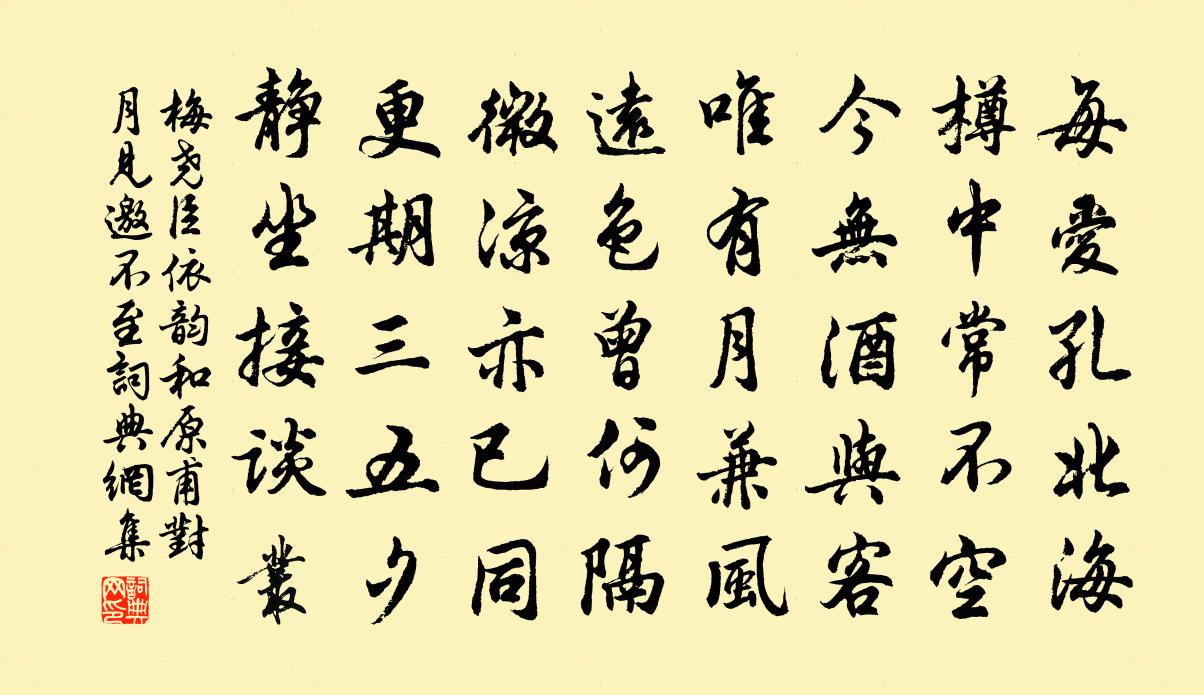 每愛孔北海
樽中常不空
今無酒與客
唯有月兼風
遠色曾何隔
微涼亦已同
更期三五夕
靜坐接談叢
梅堯臣依韵和原甫對
月見邀不至詞典網集
詞典
网印